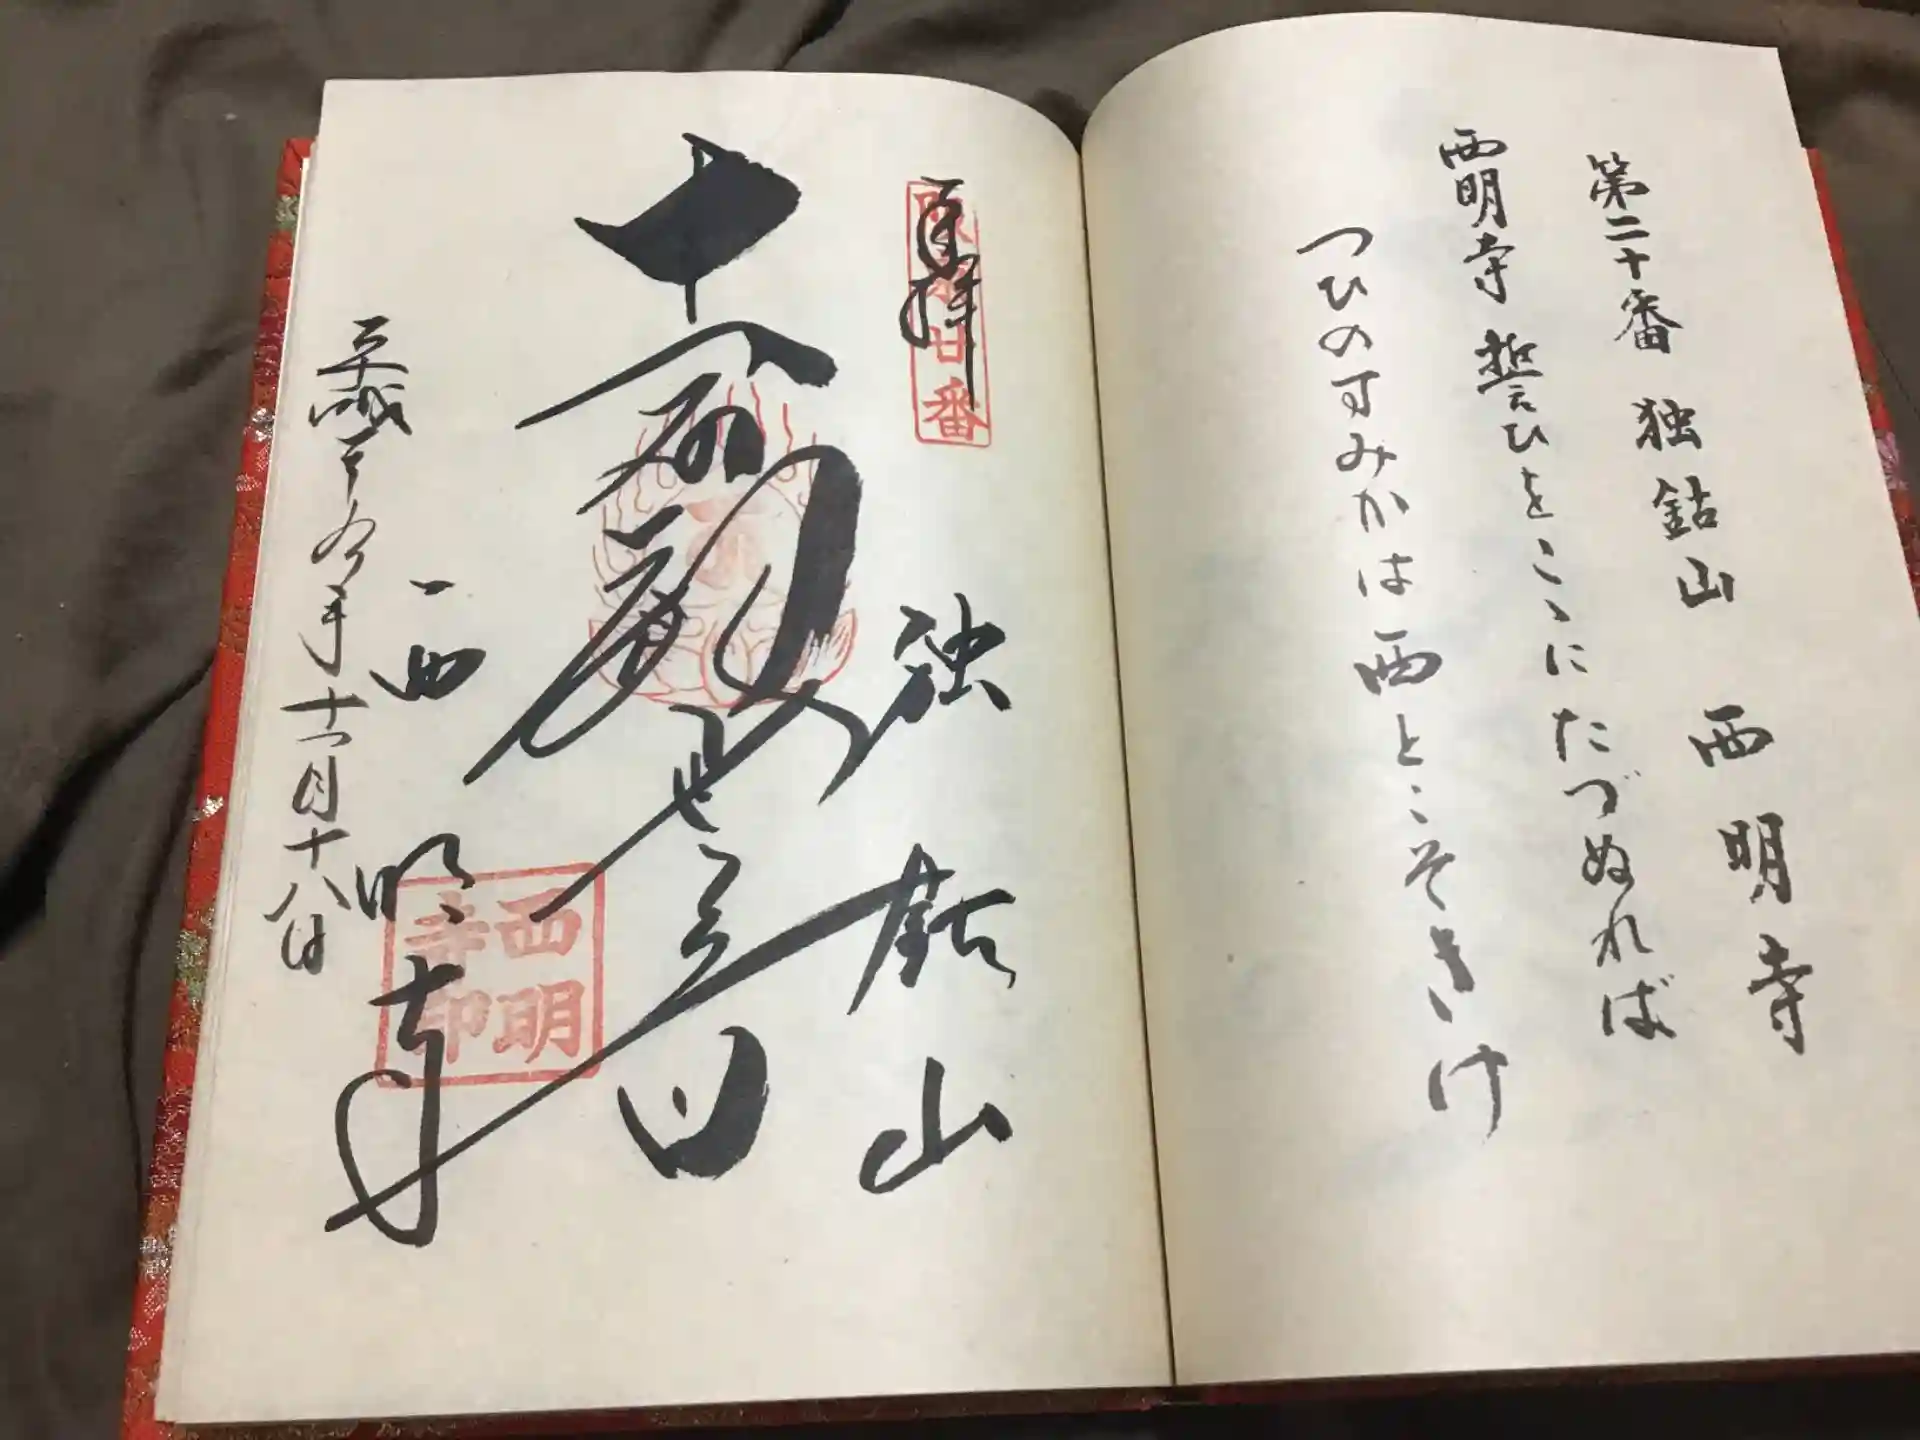 第二十番 独鈷山 西明寺
西明寺 誓ひをこゝにたづぬれば
つひのすみかは西とこそきけ
奉拝
廿番
独鈷山
十一面観世音
西明寺
西明寺印
平成二十九年十一月十八日